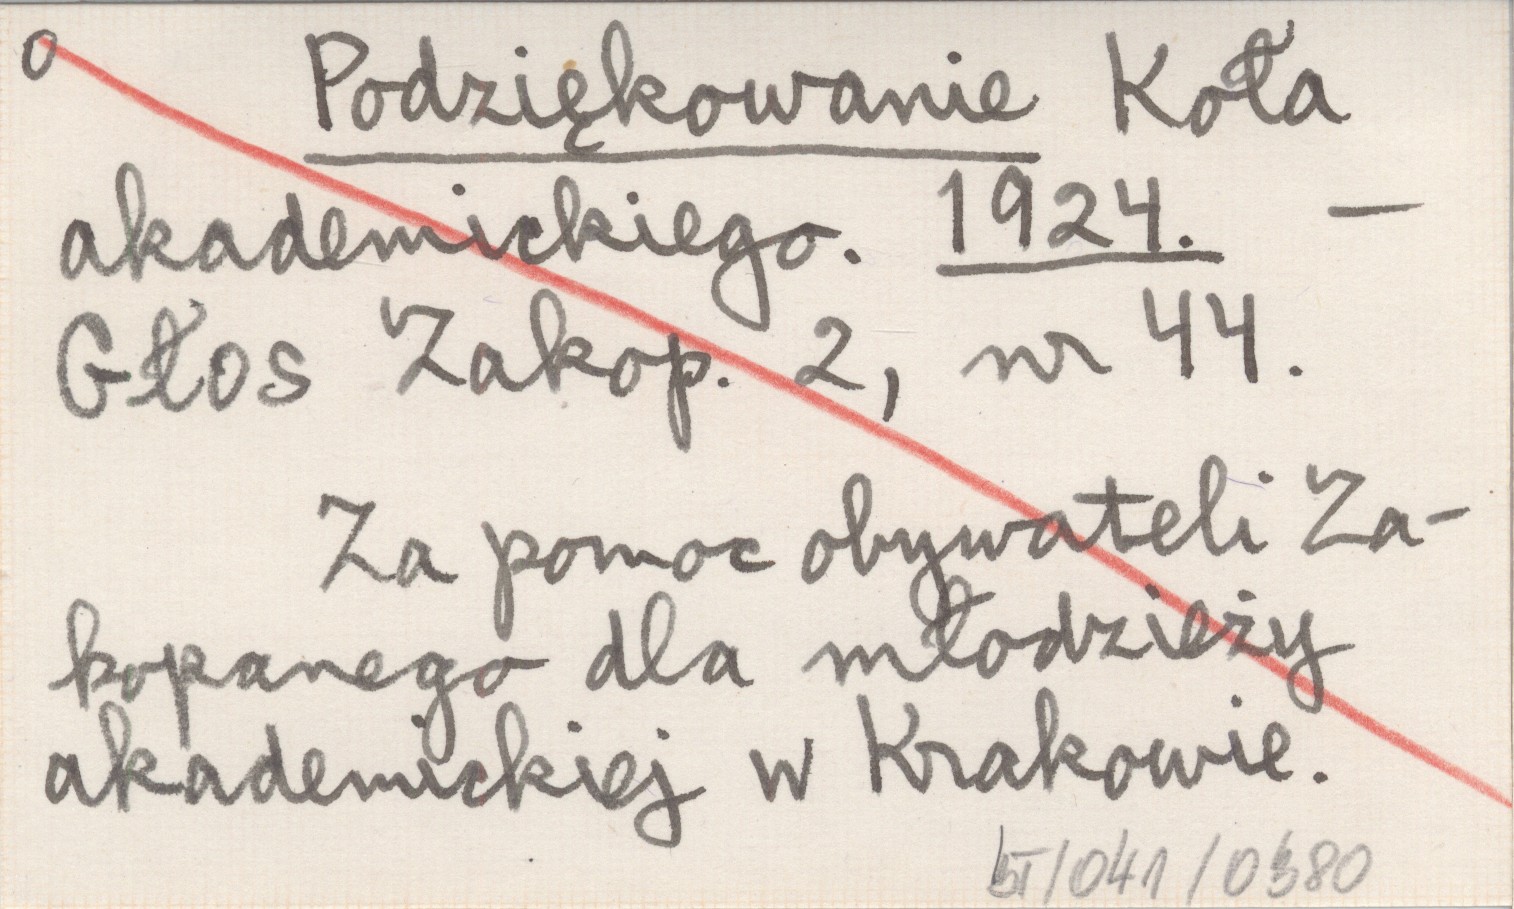 o Podziękowanie Koła
akademickiego. 1924. —
Głos Zakop. 2, nr 44.
Za pomoc obywateli Za-
kopanego dla młodzieży
akademickiej w Krakowie.
/041/0380